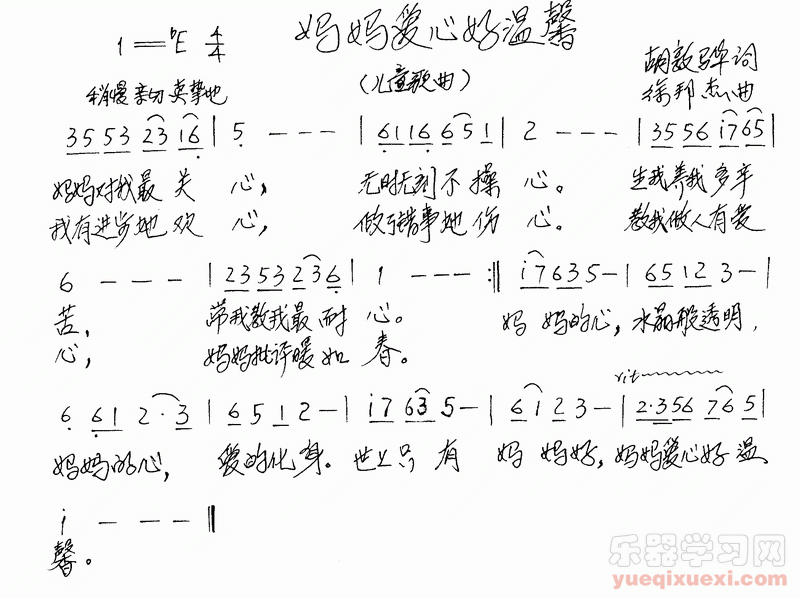 妈妈爱心好温馨
1=♭E 4/4
(儿童歌曲)
胡敦骅词
稍慢 亲切 真挚地
徐邦杰曲
35 53 23 i6 | 5 - - - | 61 16 6 5 1 | 2 - - - | 35 56 i7 65 |
妈妈对我最关心, 无时无刻不操心。 生我养我多辛
我有进步她欢心, 做了错事她伤心。 教我做人有爱
6 - - - | 23 53 2 3 6 | 1 - - - :|| i7 63 5 - | 65 12 3 - |
苦, 带我教我最耐心。 妈妈的心,水晶般透明,
心, 妈妈批评暖如春。
rit
6 61 2·3 | 6 5 1 2 - | i7 63 5 - | 6 i 2 3 - | 2·3 56 7 6 5 |
妈妈的心, 爱的化身。世上只有妈妈好,妈妈爱心好温
i - - - ||
馨。
乐器学习网
yueqixuexi.com